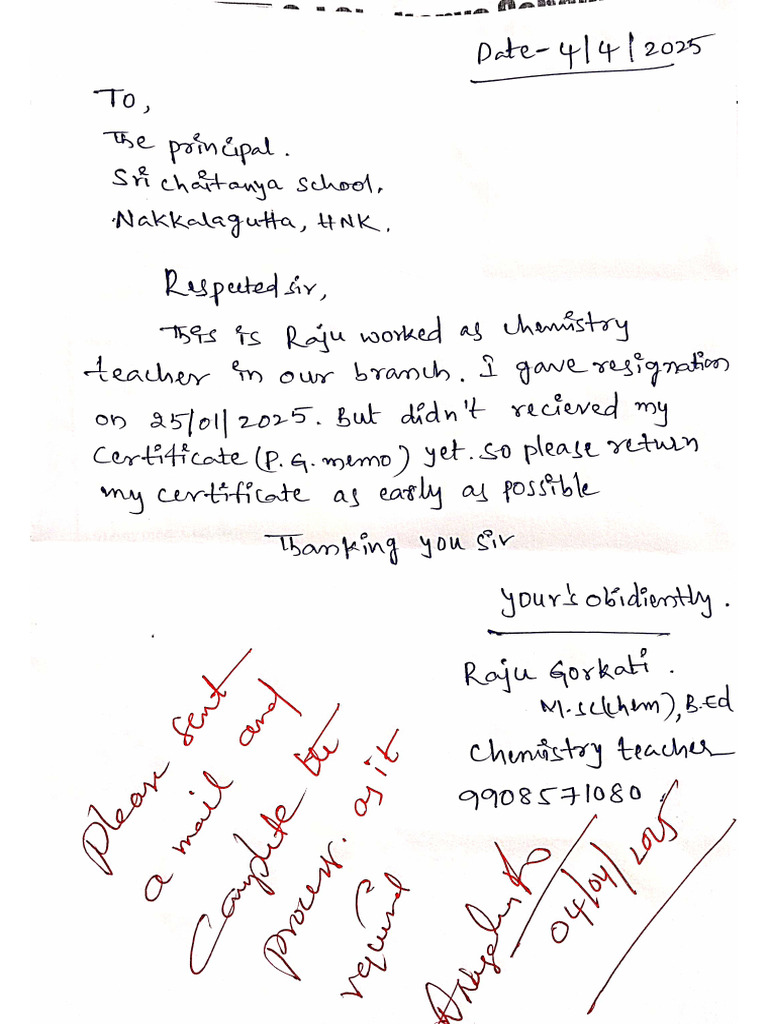 Date- 4/4/2025
To,
The principal.
Sri Chaitanya School,
Nakkalagutta, HNK.
Respected sir,
This is Raju worked as chemistry
teacher in our branch. I gave resignation
on 25/01/2025. But didn't recieved my
certificate (P.G. memo) yet. so please return
my certificate as early as possible
Thanking you sir
your's obidiently.
Raju Gorkati.
M.sc(chem), B.Ed
Chemistry teacher
9908571080.
Please sent
a mail and
Complete the
process. as it
required
04/04/2025